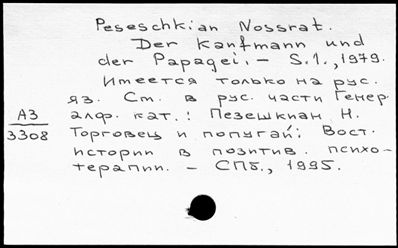 Peseschkian Nossrat.
Der Kanfmann und
der Papagei. - S.l., 1979.
Имеется только на рус.
яз. См. в рус. части Генер.
алф. кат.: Пезешкиан Н.
Торговец и попугай: Вост.
истории в позитив. психо-
терапии. - СПб., 1995.
А3
3308